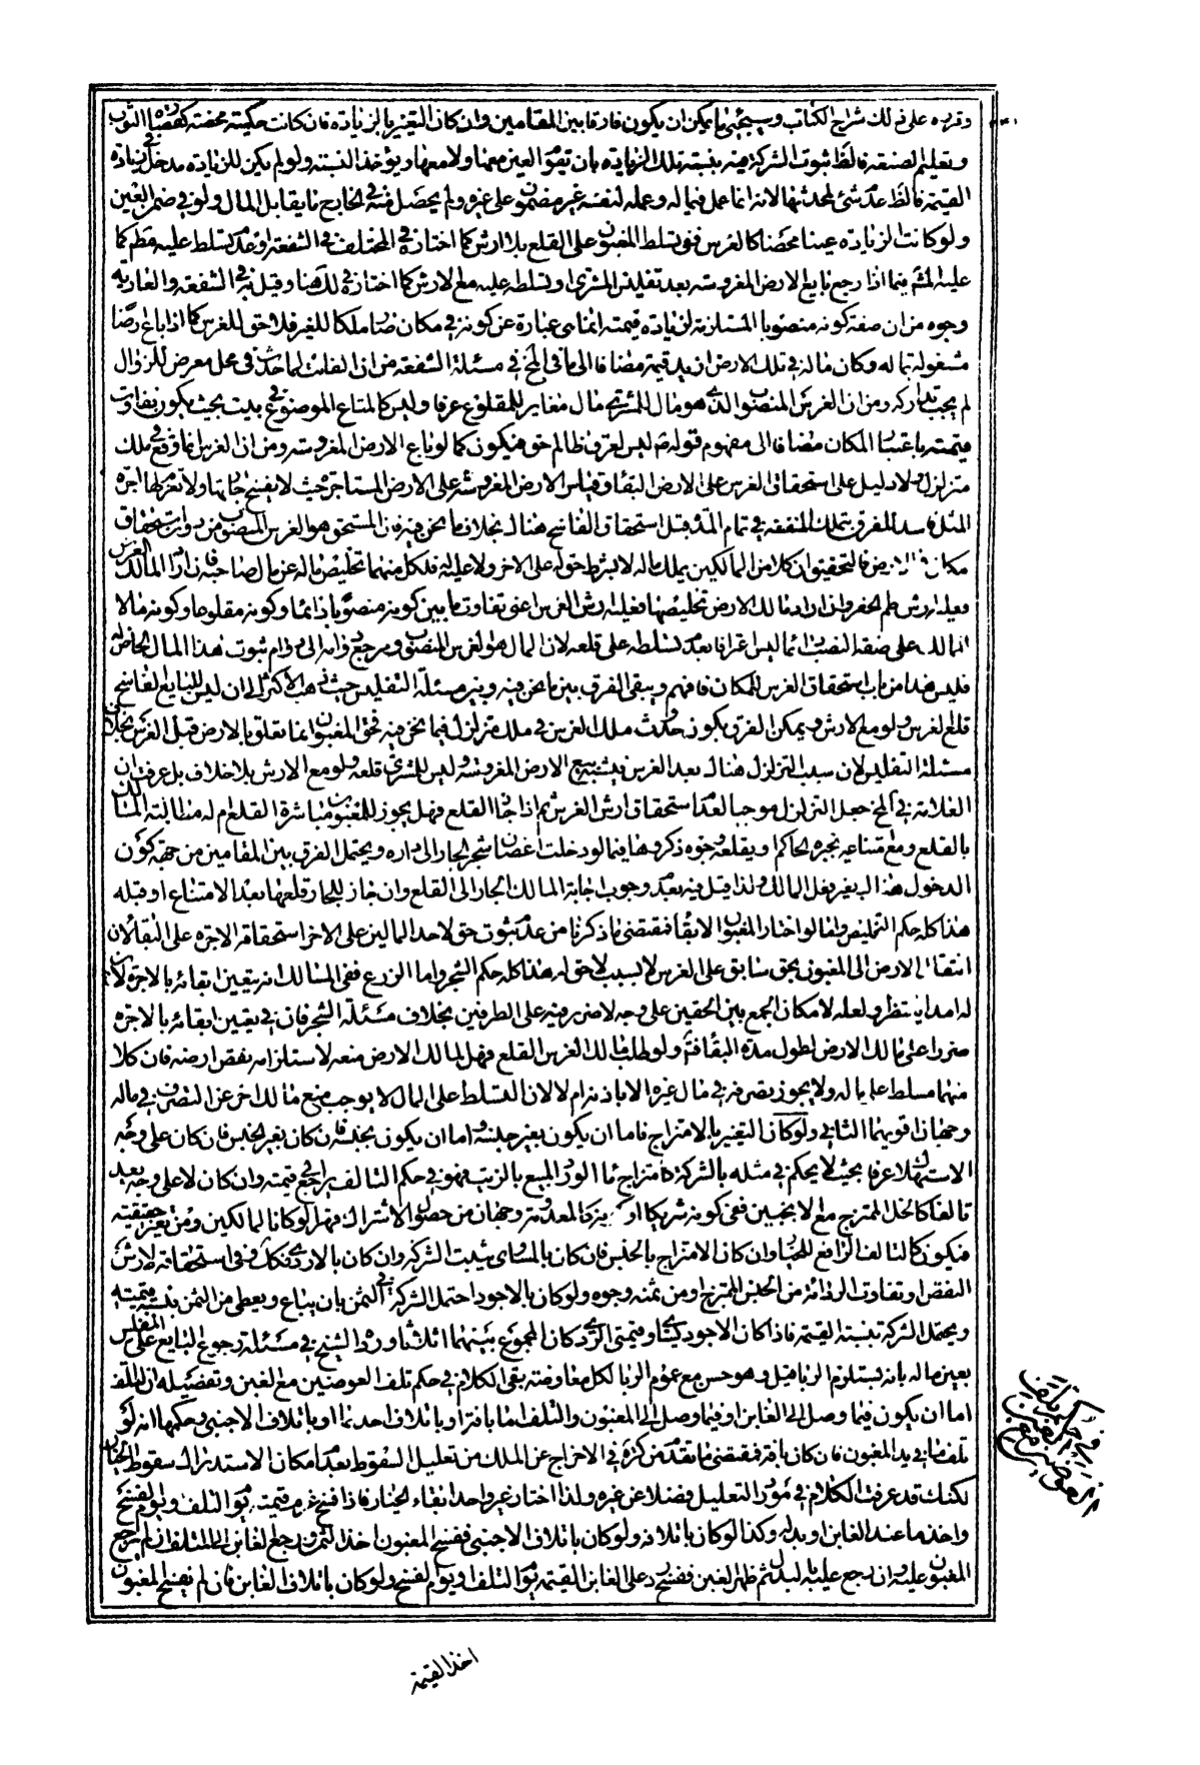 وقرره على ذلك شراح الكتاب وسيجئ ما يمكن ان يكون فارقا بين المقامين وان كان التغير بالزيادة فان كانت حكمية محضة كقصارة الثوب
وتعليم الصنعة فالظ ثبوت الشركة فيه بنسبة تلك الزيادة بان تقوم العين معها ولا معها ويؤخذ النسبة ولو لم يكن للزيادة مدخل في زيادة
القيمة فالظ عدم شئ لمحدثها لانه انما عمل في ماله وعمله لنفسه غير مضمون على غيره ولم يحصل منه في الخارج ما يقابل المال ولو في ضمن العين
ولو كانت الزيادة عينا محضا كالغرس ففي تسلط المغبون على القلع بلا ارش كما اختاره في المختلف في الشفعة او عدم تسلطه عليه مطم كما
عليه المشم فيما اذا رجع بايع الارض المغروسة بعد تفليس المشتري او تسلطه عليه مع الارش كما اختاره في لك هنا وقيل به في الشفعة والعارية
وجوه من ان صفة كونه منصوبا المستلزمة لزيادة قيمته انما هي عبارة عن كونه في مكان صار ملكا للغير فلا حق للغرس كما اذا باع ارضا
مشغولة بماله وكان ماله في تلك الارض ازيد قيمة مضافا الى ما في المخ في مسئلة الشفعة من ان الفائت لما حدث في محل معرض للزوال
لم يجب تداركه ومن ان الغرس المنصوب الذي هو مال للمشتري مال مغاير للمقلوع عرفا وليس كالمتاع الموضوع في بيت بحيث يكون تفاوت
قيمته باعتبار المكان مضافا الى مفهوم قوله ص ليس لعرق ظالم حق فيكون كما لو باع الارض المغروسة ومن ان الغرس انما وقع في ملك
متزلزل ولا دليل على استحقاق الغرس على الارض البقاء وقياس الارض المغروسة على الارض المستاجرة حيث لا يفسخ اجارتها ولا تغرم لها اجرة
المثل فاسد للفرق بتملك المنفعة في تمام المدة قبل استحقاق الفاسخ هناك بخلاف ما نحن فيه فان المستحق هو الغرس المنصوب من دون استحقاق
مكان في الارض فالتحقيق ان كلا من المالكين يملك ماله لا بشرط حق له على الاخر ولا عليه فلكل منهما تخليص ماله عن مال صاحبه فان اراد مالك الغرس
فعليه ارش طم الحفر وان اراد مالك الارض تخليصها فعليه ارش الغرس اعني تفاوت ما بين كونه منصوبا دائما وكونه مقلوعا وكونه مالا
للمالك على صفة النصب دائما ليس اعترافا بعدم تسلطه على قلعه لان المال هو الغرس المنصوب ومرجع دوامه الى دوام ثبوت هذا المال الخاص له
فليس هذا من باب استحقاق الغرس للمكان فافهم ويبقى الفرق بين ما نحن فيه وبين مسئلة التفليس حيث ذهب الاكثر الى ان ليس للبايع الفاسخ
قلع الغرس ولو مع الارش ويمكن الفرق بكون حدوث ملك الغرس في ملك متزلزل فيما نحن فيه فحق المغبون انما تعلق بالارض قبل الغرس بخلاف
مسئلة التفليس لان سبب التزلزل هناك بعد الغرس فيشبه بيع الارض المغروسة وليس للمشتري قلعه ولو مع الارش بلا خلاف بل عرفت ان
العلامة في المخ جعل التزلزل موجبا لعدم استحقاق ارش الغرس ثم اذا جاز القلع فهل يجوز للمغبون مباشرة القلع ام له مطالبة المالك
بالقلع ومع امتناعه يجبره الحاكم او يقلعه وجوه ذكروها فيما لو دخلت اغصان شجر الجار الى داره ويحتمل الفرق بين المقامين من جهة كون
الدخول هناك بغير فعل المالك ولذا قيل فيه بعدم وجوب اجابة المالك الجار الى القلع وان جاز للجار قلعها بعد الامتناع او قبله
هذا كله حكم التخليص واما لو اختار المغبون الابقاء فمقتضى ما ذكرنا من عدم ثبوت حق لاحد المالين على الاخر استحقاقه الاجرة على البقاء لان
انتقال الارض الى المغبون بحق سابق على الغرس لا بسبب لاحق له هذا كله حكم الشجر واما الزرع ففي المسالك انه يتعين ابقائه بالاجرة لان
له امدا ينتظر ولعله لامكان الجمع بين الحقين على وجه لا ضرر فيه على الطرفين بخلاف مسئلة الشجر فان في تعيين ابقائه بالاجرة
ضررا على مالك الارض لطول مدة البقاء فتم ولو طلب مالك الغرس القلع فهل لمالك الارض منعه لاستلزامه نقص ارضه فان كلا
منهما مسلط على ماله ولا يجوز تصرفه في مال غيره الا باذنه ام لا لان التسلط على المال لا يوجب منع مالك اخر عن التصرف في ماله
وجهان اقويهما الثاني ولو كان التغير بالامتزاج فاما ان يكون بغير جنسه واما ان يكون بجنسه فان كان بغير الجنس فان كان على وجه
الاستهلاك عرفا بحيث لا يحكم في مثله بالشركة كامتزاج ماء الورد المبيع بالزيت فهو في حكم التالف يرجع الى قيمته وان كان لا على وجه يعد
تالفا كالخل الممتزج مع الانجبين ففي كونه شريكا او كونه كالمعدوم وجهان من حصول الاشتراك قهرا لو كانا لمالكين ومن تغير حقيقته
فيكون كالتالف الرافع للخيار وان كان الامتزاج بالجنس فان كان بالمساوي يثبت الشركة وان كان بالاردى فكك وفي استحقاقه لارش
النقص او تفاوت الرداءة من الجنس الممتزج او من ثمنه وجوه ولو كان بالاجود احتمل الشركة في الثمن بان يباع ويعطى من الثمن بنسبة قيمته
ويحتمل الشركة بنسبة القيمة فاذا كان الاجود يساوي قيمتي الردي كان المجموع بينهما اثلاثا ورده الشيخ في مسئلة رجوع البايع على المفلس
بعين ماله بانه يستلزم الربا قيل وهو حسن مع عموم الربا لكل معاوضة بقي الكلام في حكم تلف العوضين مع الغبن وتفصيله ان التلف
اما ان يكون فيما وصل الى الغابن او فيما وصل الى المغبون والتلف اما بافة او باتلاف احدهما او باتلاف الاجنبي وحكمها انه لو
تلف ما في يد المغبون فان كان بافة فمقتضى ما تقدم من التذكرة في الاخراج عن الملك من تعليل السقوط بعدم امكان الاستدراك سقوط الخيار
لكنك قد عرفت الكلام في مورد التعليل فضلا عن غيره ولذا اختار غير واحد بقاء الخيار فاذا فسخ غرم قيمته يوم التلف او يوم الفسخ
واخذ ما عند الغابن او بدله وكذا لو كان باتلافه ولو كان باتلاف الاجنبي ففسخ المغبون اخذ الثمن ورجع الغابن الى المتلف ان لم يرجع
المغبون عليه وان رجع عليه بالبدل ثم ظهر الغبن ففسخ رد على الغابن القيمة يوم التلف او يوم الفسخ ولو كان باتلاف الغابن فان لم يفسخ المغبون
اخذ القيمة
في حكم تلف
العوضين مع
الغبن